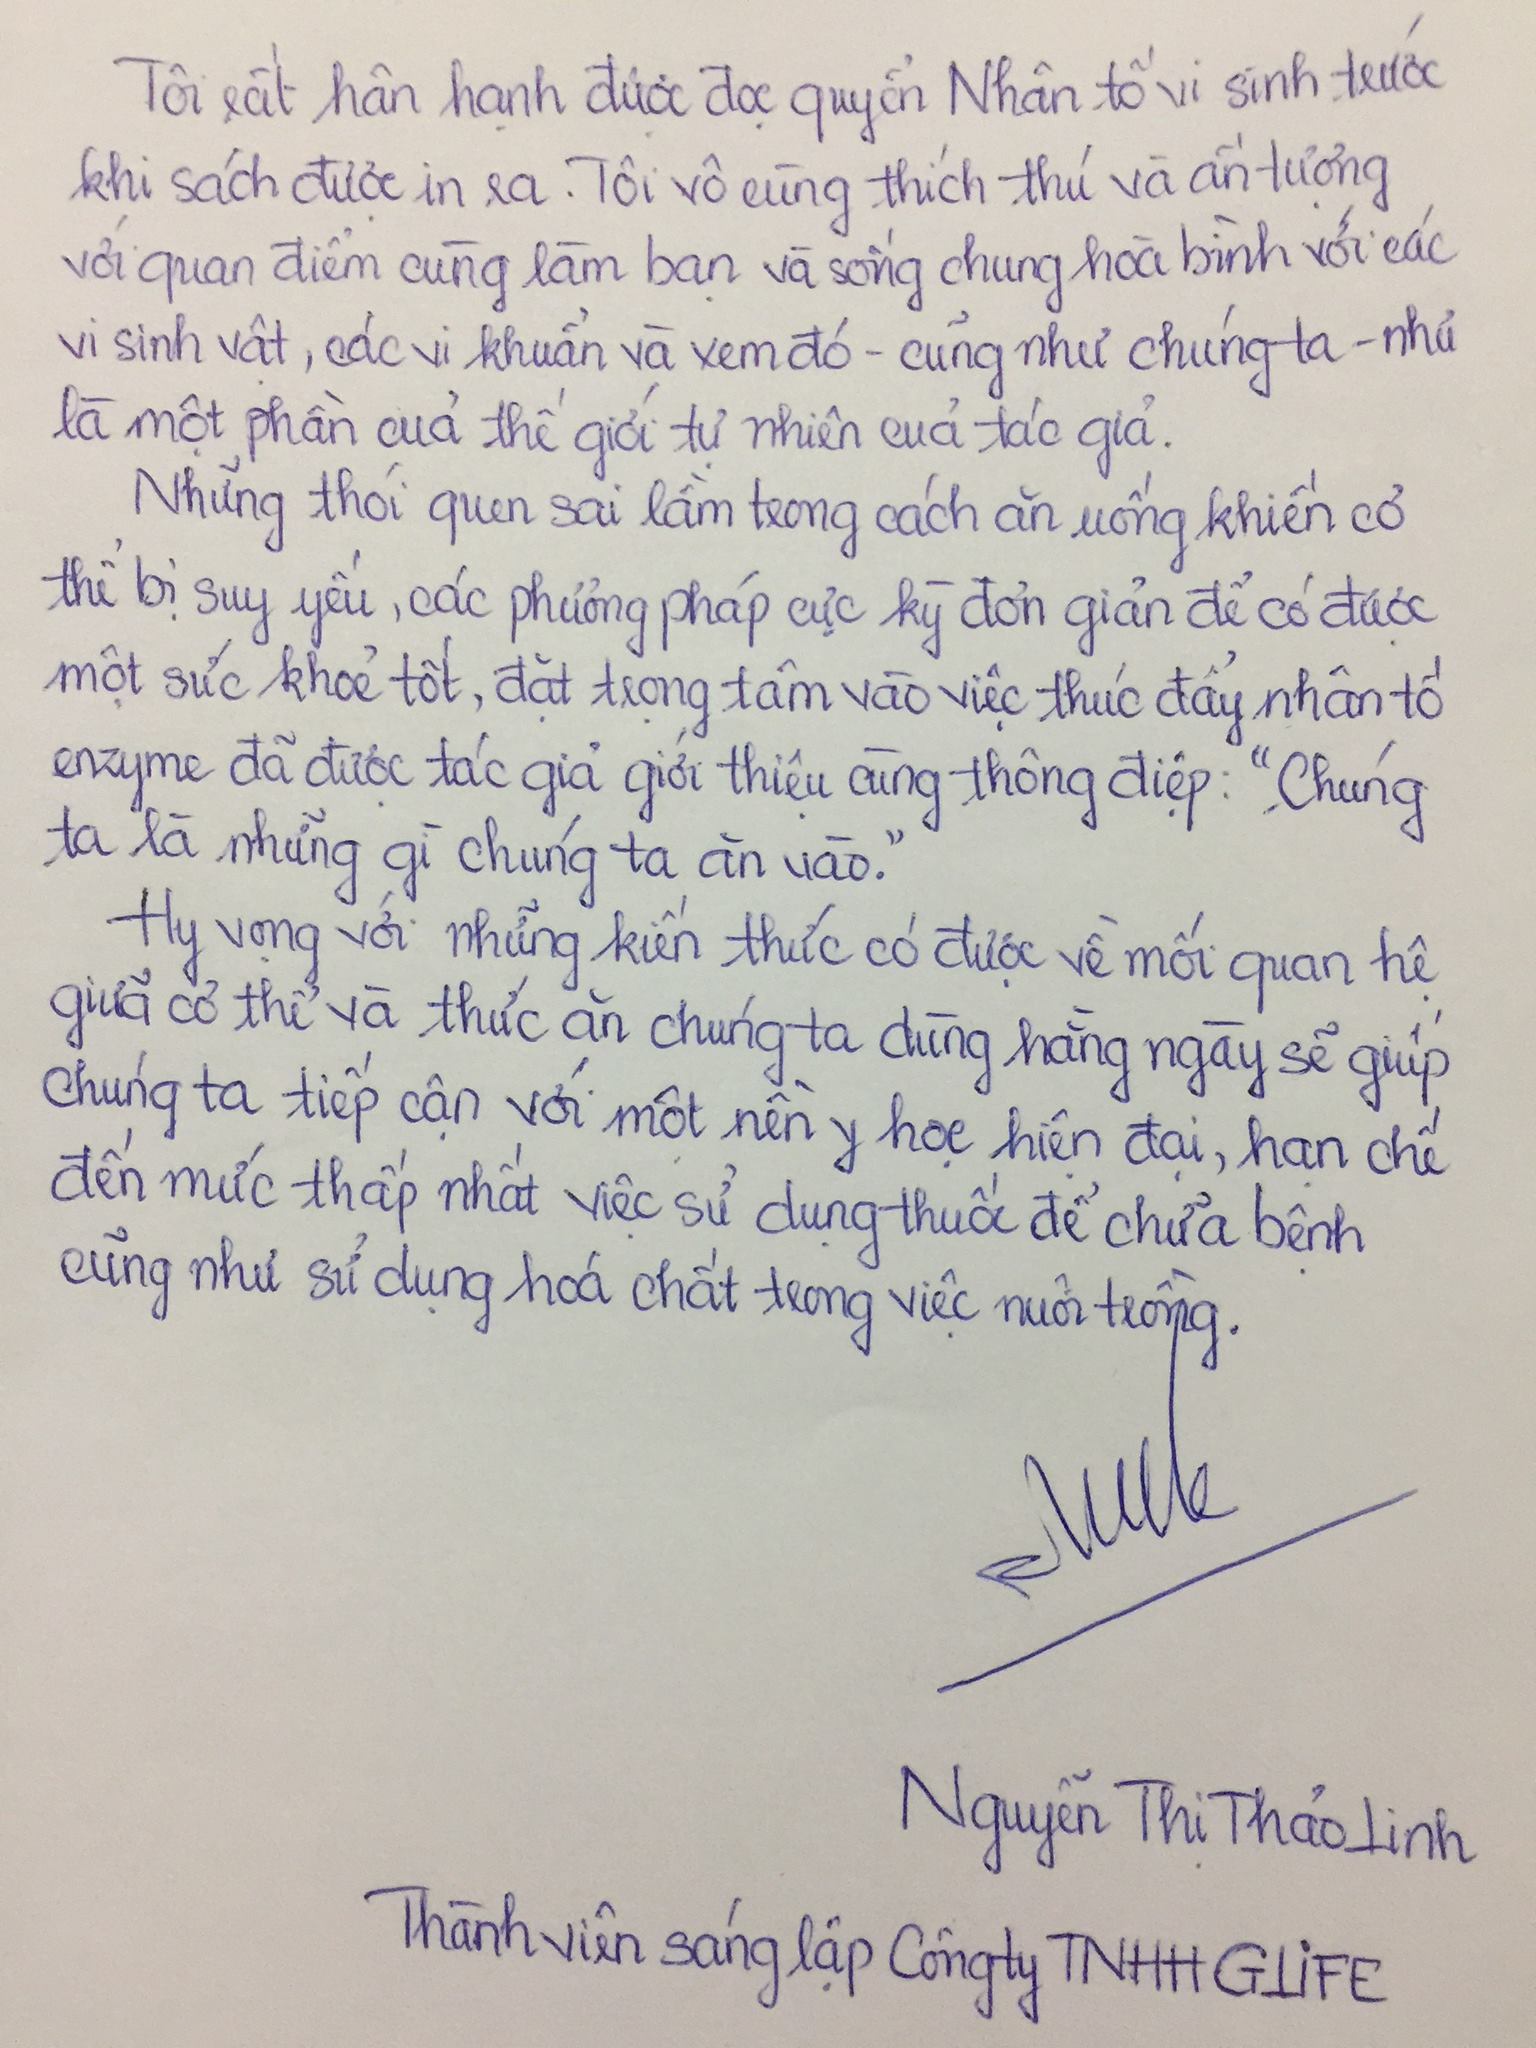 Tôi rất hân hạnh được đọc quyển Nhân tố vi sinh trước
khi sách được in ra. Tôi vô cùng thích thú và ấn tượng
với quan điểm cùng làm bạn và sống chung hoà bình với các
vi sinh vật, các vi khuẩn và xem đó - cũng như chúng ta - như
là một phần của thế giới tự nhiên của tác giả.
Những thói quen sai lầm trong cách ăn uống khiến cơ
thể bị suy yếu, các phương pháp cực kỳ đơn giản để có được
một sức khoẻ tốt, đặt trọng tâm vào việc thúc đẩy nhân tố
enzyme đã được tác giả giới thiệu cùng thông điệp: "Chúng
ta là những gì chúng ta ăn vào."
Hy vọng với những kiến thức có được về mối quan hệ
giữa cơ thể và thức ăn chúng ta dùng hằng ngày sẽ giúp
chúng ta tiếp cận với một nền y học hiện đại, hạn chế
đến mức thấp nhất việc sử dụng thuốc để chữa bệnh
cũng như sử dụng hoá chất trong việc nuôi trồng.
Nguyễn Thị Thảo Linh
Thành viên sáng lập Công ty TNHH GLiFE